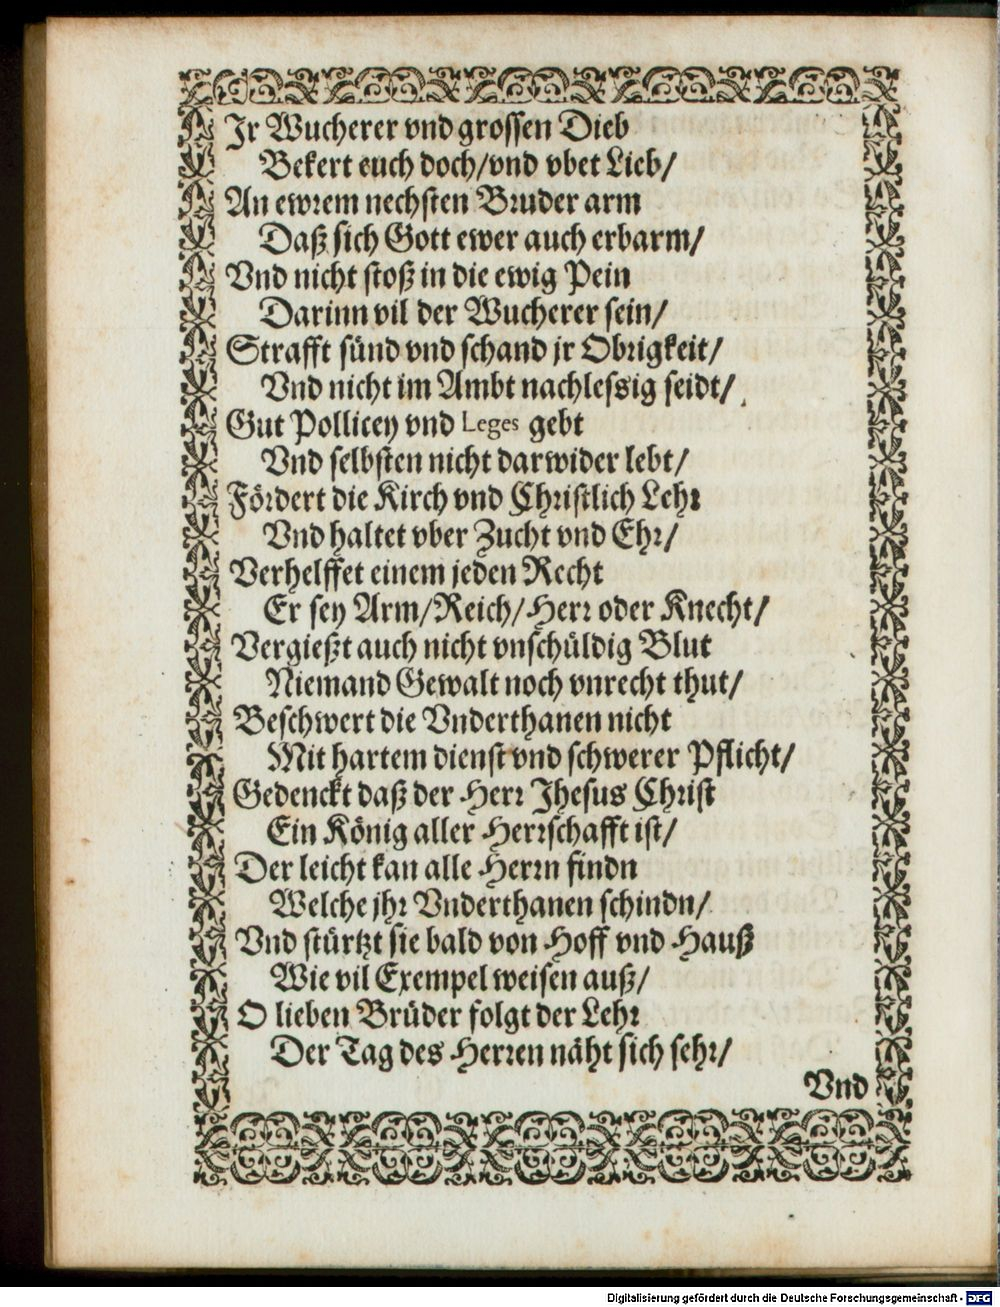 Jr Wucherer vnd grossen Dieb
Bekert euch doch/vnd vbet Lieb/
An ewrem nechsten Bruder arm
Daß sich Gott ewer auch erbarm/
Vnd nicht stoß in die ewig Pein
Darinn vil der Wucherer sein/
Strafft sünd vnd schand jr Obrigkeit/
Vnd nicht im Ambt nachlessig seidt/
Gut Pollicey vnd Leges gebt
Vnd selbsten nicht darwider lebt/
Fördert die Kirch vnd Christlich Lehr
Vnd haltet vber Zucht vnd Ehr/
Verhelffet einem jeden Recht
Er sey Arm/Reich/Herr oder Knecht/
Vergießt auch nicht vnschüldig Blut
Niemand Gewalt noch vnrecht thut/
Beschwert die Vnderthanen nicht
Mit hartem dienst vnd schwerer Pflicht/
Gedenckt daß der Herr Jhesus Christ
Ein König aller Herrschafft ist/
Der leicht kan alle Herrn findn
Welche jhr Vnderthanen schindn/
Vnd stürtzt sie bald von Hoff vnd Hauß
Wie vil Exempel weisen auß/
O lieben Brüder folgt der Lehr
Der Tag des Herren näht sich sehr/
Vnd
Digitalisierung gefördert durch die Deutsche Forschungsgemeinschaft - DFG